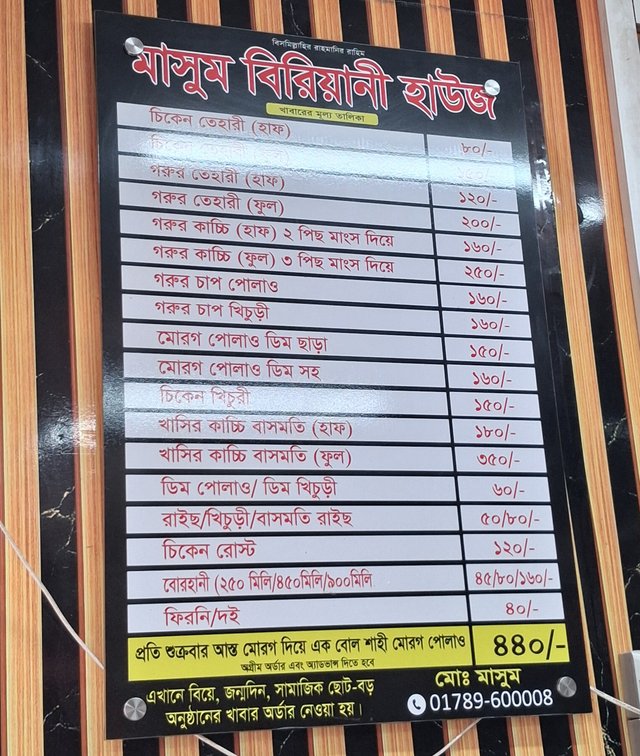 বিসমিল্লাহির রাহমানির রাহিম
মাসুম বিরিয়ানী হাউজ
খাবারের মূল্য তালিকা
চিকেন তেহারী (হাফ) ৮০/-
চিকেন তেহারী
গরুর তেহারী (হাফ) ১২০/-
গরুর তেহারী (ফুল) ২০০/-
গরুর কাচ্চি (হাফ) ২ পিছ মাংস দিয়ে ১৬০/-
গরুর কাচ্চি (ফুল) ৩ পিছ মাংস দিয়ে ২৫০/-
গরুর চাপ পোলাও ১৬০/-
গরুর চাপ খিচুড়ী ১৬০/-
মোরগ পোলাও ডিম ছাড়া ১৫০/-
মোরগ পোলাও ডিম সহ ১৬০/-
চিকেন খিচুরী ১৫০/-
খাসির কাচ্চি বাসমতি (হাফ) ১৮০/-
খাসির কাচ্চি বাসমতি (ফুল) ৩৫০/-
ডিম পোলাও/ ডিম খিচুড়ী ৬০/-
রাইছ/খিচুড়ী/বাসমতি রাইছ ৫০/৮০/-
চিকেন রোস্ট ১২০/-
বোরহানী (২৫০ মিলি/৪৫০মিলি/৯০০মিলি ৪৫/৮০/১৬০/-
ফিরনি/দই ৪০/-
প্রতি শুক্রবার আস্ত মোরগ দিয়ে এক বোল শাহী মোরগ পোলাও ৪৪০/-
অগ্রীম অর্ডার এবং অ্যাডভান্স দিতে হবে
এখানে বিয়ে, জন্মদিন, সামাজিক ছোট-বড়
অনুষ্ঠানের খাবার অর্ডার নেওয়া হয়।
মোঃ মাসুম
01789-600008